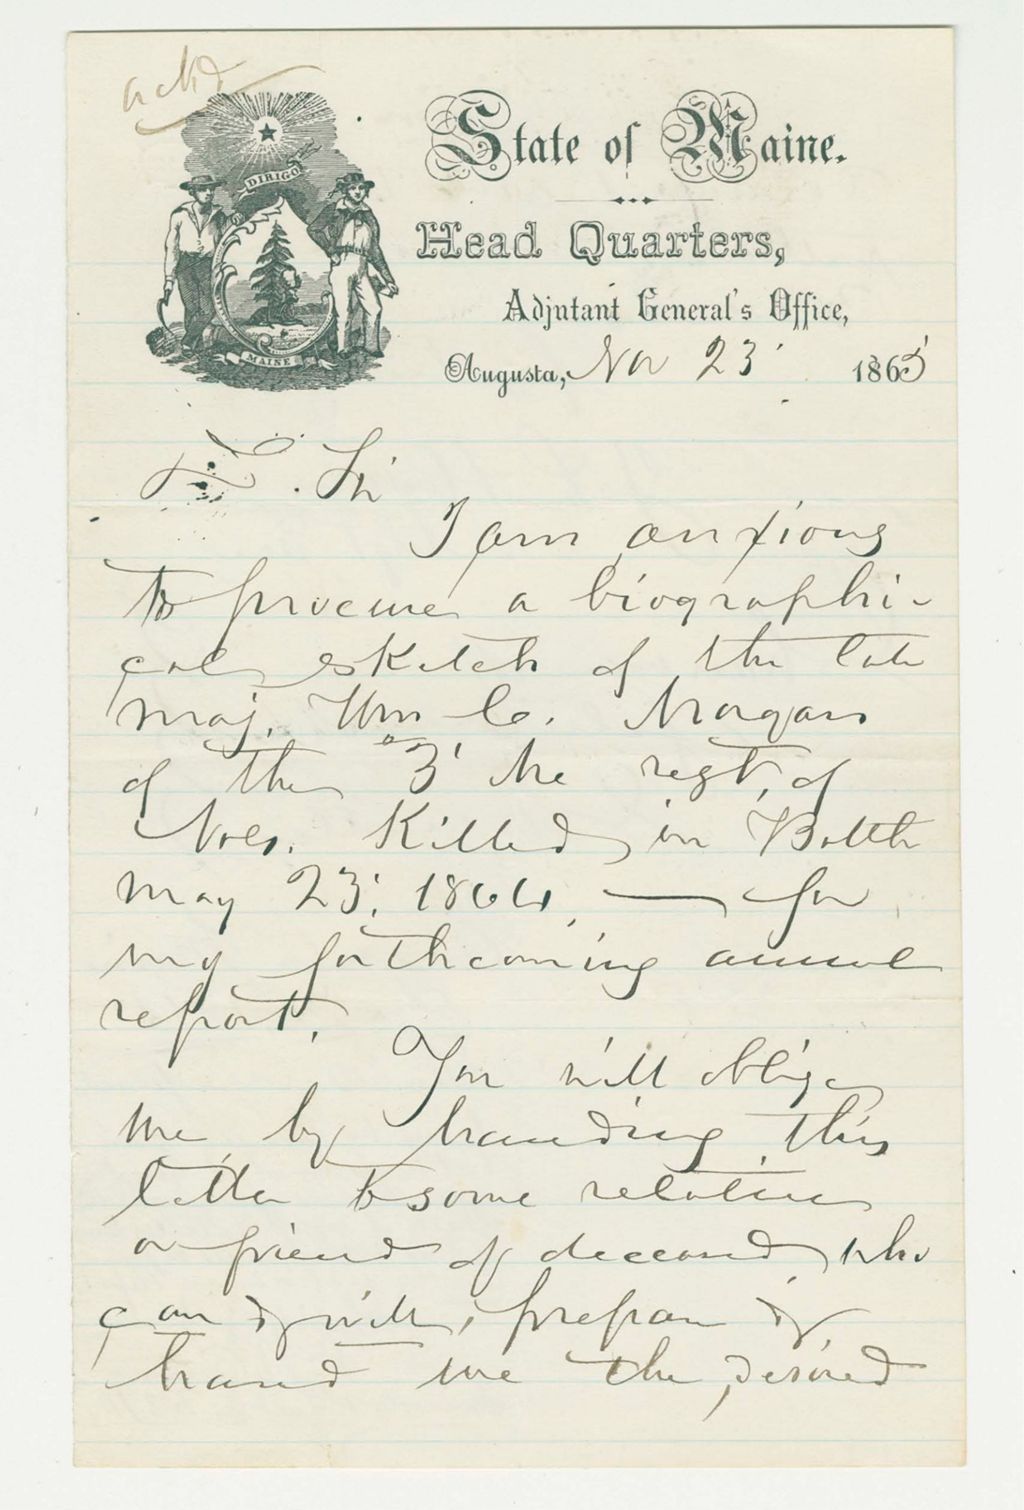 ackd
DIRIGO
MAINE
State of Maine.
Head Quarters,
Adjutant General's Office,
Augusta, Nov 23' 1865
Sir
I am anxious
to procure a biographi-
cal sketch of the late
Maj. Wm C. Morgan
of the 3' Me regt. of
Vols. Killed in Battle
May 23', 1864, — for
my forthcoming annual
report.
You will oblige
me by handing this
letter to some relative
or friend of deceased, who
can & will, prepare &
hand me the desired